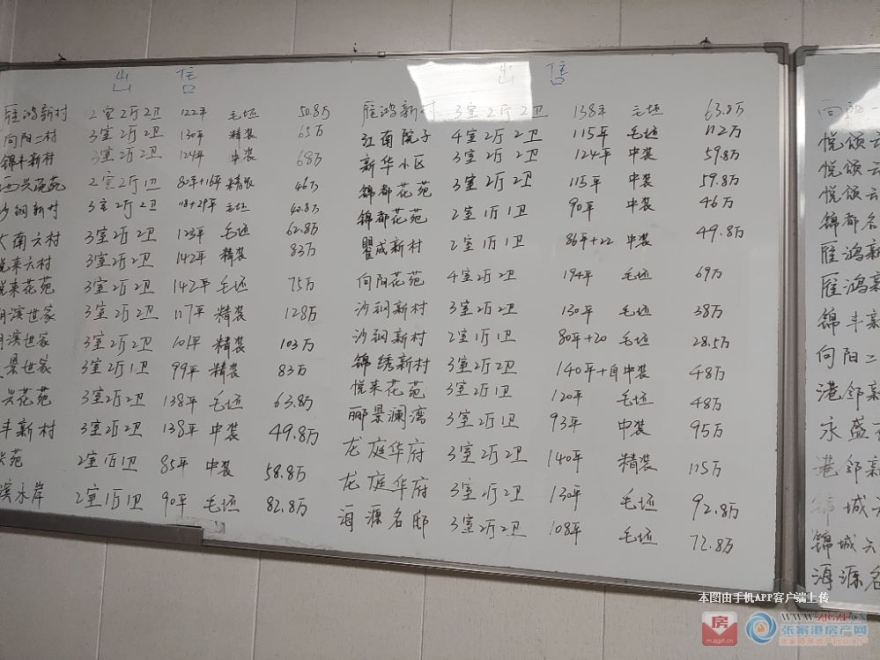 出 售
雁鸿新村 2室2厅2卫 122平 毛坯 50.8万
向阳二村 3室2厅2卫 130平 精装 65万
锦丰新村 3室2厅2卫 124平 中装 68万
西兴花苑 2室2厅1卫 82平+16平 精装 46万
沙钢新村 3室2厅2卫 +29平 毛坯 40.8万
大南六村 3室2厅2卫 123平 毛坯 62.8万
悦来六村 3室2厅2卫 142平 精装 83万
悦来花苑 3室2厅2卫 142平 毛坯 75万
滨世家 3室2厅2卫 117平 精装 128万
滨世家 3室2厅2卫 101平 精装 103万
景世家 3室2厅1卫 99平 精装 83万
兴花苑 3室2厅2卫 138平 毛坯 63.8万
丰新村 3室2厅2卫 138平 中装 49.8万
苑 2室1厅1卫 85平 中装 58.8万
水岸 2室1厅1卫 90平 毛坯 82.8万
出 售
雁鸿新村 3室2厅2卫 138平 毛坯 63.8万
江南院子 4室2厅2卫 115平 毛坯 112万
新华小区 3室2厅2卫 124平 中装 59.8万
锦都花苑 3室2厅2卫 115平 中装 59.8万
锦都花苑 2室1厅1卫 90平 中装 46万
瞿成新村 2室1厅1卫 86平+22 中装 49.8万
向阳花苑 4室2厅2卫 194平 毛坯 69万
沙钢新村 3室2厅2卫 130平 毛坯 38万
沙钢新村 2室1厅1卫 80平+20 毛坯 28.5万
锦绣新村 3室2厅2卫 140平+自 中装 48万
悦来花苑 3室2厅1卫 120平 毛坯 48万
郦景澜湾 3室2厅1卫 93平 中装 95万
龙庭华府 3室2厅2卫 140平 精装 115万
龙庭华府 3室2厅2卫 130平 毛坯 92.8万
海源名邸 3室2厅2卫 108平 毛坯 72.8万
向阳
悦颂
悦颂
悦颂
锦都名
雁鸿新
雁鸿新
锦丰新
向阳二
港邻新
永盛
港邻新
锦城
锦城
海源名
本图由手机APP客户端上传
房
张家港房产网